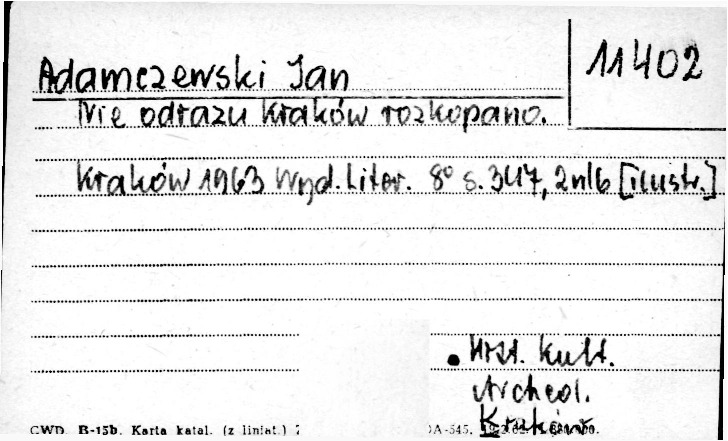 11402
Adamczewski Jan
Nie odrazu Kraków rozkopano.
Kraków 1963 Wyd. Liter. 8° s. 347, 2nlb [ilustr.]
Hist. kult.
Archeol.
Kraków
CWD. B-15b. Karta katal. (z liniat.)